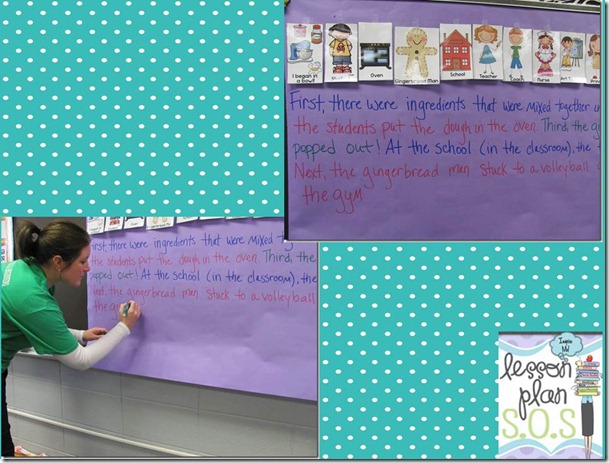 I began in
a bowl!
Oven
Gingerbread Man
School
Teacher
Coach
Nurse
Art
First, there were ingredients that were mixed together
the students put the dough in the oven. Third, the
popped out! At the school (in the classroom), the
Next, the gingerbread man stuck to a volleyball
the gym
First, there were ingredients that were mixed
the students put the dough in the oven. Third, the
popped out! At the school (in the classroom), the
the gingerbread man stuck to a volleyball
the
lesson
plan
S.O.S